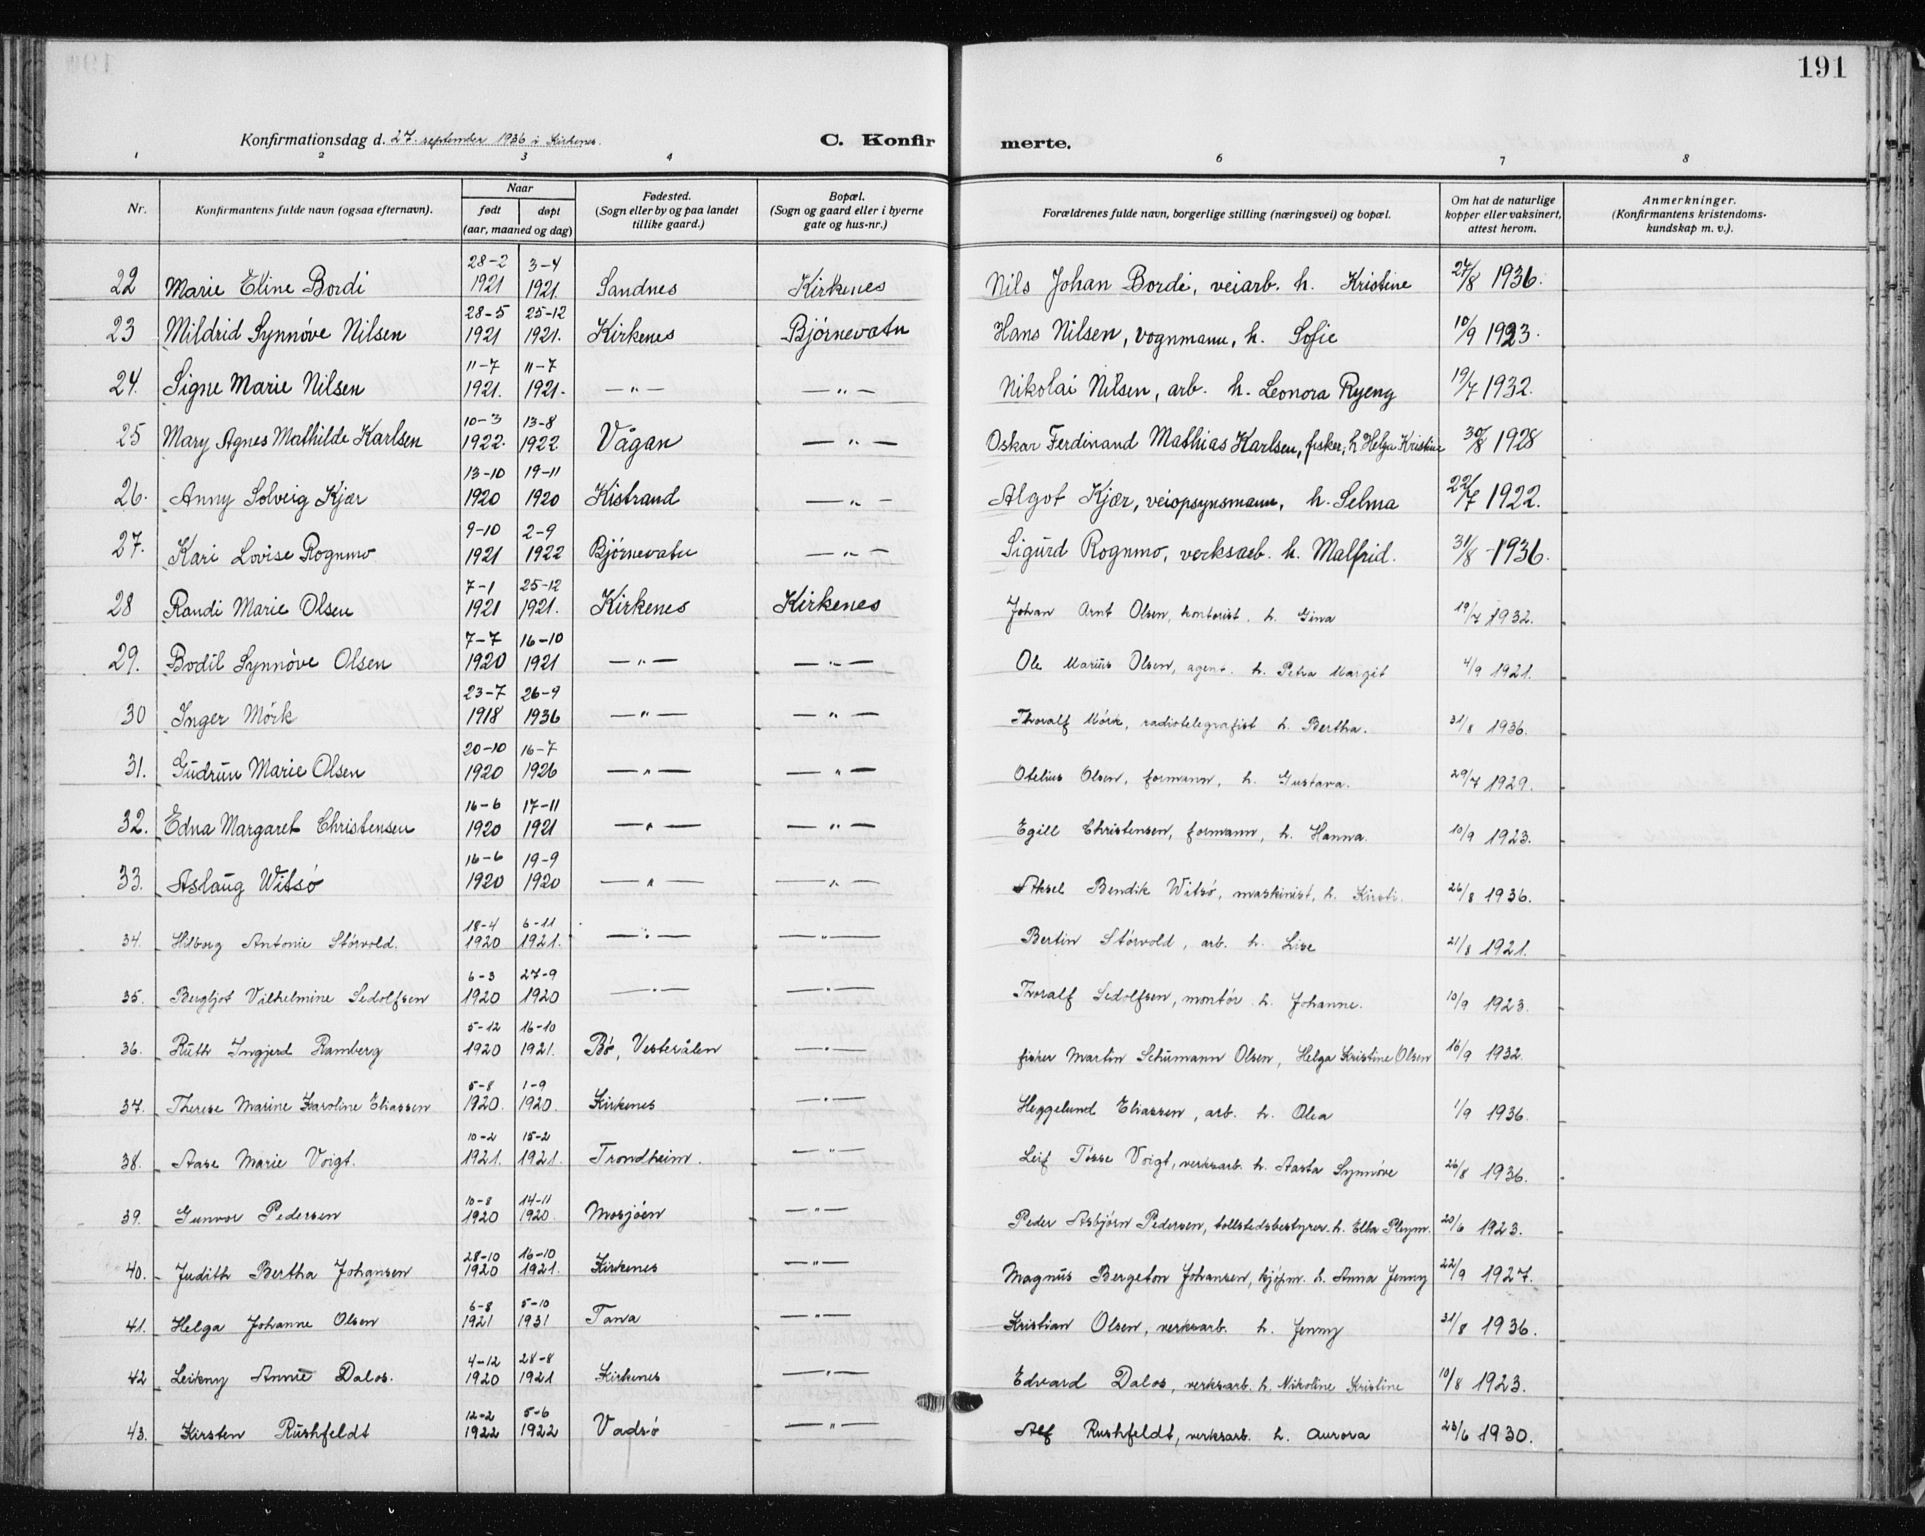 191
Konfirmationsdag d. 27. september 1936 i Kirkenes.
C. Konfirmerte.
1 2 3 4 6 7 8
Nr. | Konfirmantens fulde navn (ogsaa efternavn). | Naar født | døpt (aar, maaned og dag) | Fødested. (Sogn eller by og paa landet tillike gaard.) | Bopæl. (Sogn og gaard eller i byerne gate og hus-nr.) | Forældrenes fulde navn, borgerlige stilling (næringsvei) og bopæl. | Om hat de naturlige kopper eller vaksinert, attest herom. | Anmerkninger. (Konfirmantens kristendoms-kundskap m. v.).
22 Marie Eline Bordi 28-2 1921 3-4 1921. Sandnes Kirkenes Nils Johan Bordi, veiarb. h. Kristine 27/8 1936.
23 Mildrid Synnøve Nilsen 28-5 1921 25-12 1921. Kirkenes Bjørnevatn Hans Nilsen, vognmann, h. Sofie 10/9 1923.
24. Signe Marie Nilsen 11-7 1921. 11-7 1921. —"— —"— Nikolai Nilsen, arb. h. Leonora Ryeng 19/7 1932.
25 Mary Agnes Mathilde Karlsen 10-3 1922. 13-8 1922 Vågan —"— Oskar Ferdinand Mathias Karlsen, fisker, h Helga Kristine 30/8 1928
26. Anny Solveig Kjær 13-10 1920 19-11 1920 Kistrand —"— Algot Kjær, veiopsynsmann, h. Selma 22/7 1922.
27. Kari Lovise Rognmo 9-10 1921 2-9 1922 Bjørnevatn —"— Sigurd Rognmo, verksarb. h. Malfrid. 31/8 -1936.
28 Randi Marie Olsen 7-1 1921 25-12 1921. Kirkenes Kirkenes Johan Arnt Olsen, kontorist. h. Gina 19/7 1932.
29. Bodil Synnøve Olsen 7-7 1920 16-10 1921 —"— —"— Ole Marius Olsen, agent. h. Petra Margit 4/9 1921.
30 Inger Mörk 23-7 1918 26-9 1936 —"— —"— Thoralf Mörk, radiotelegrafist h. Bertha. 31/8 1936.
31. Gudrun Marie Olsen 20-10 1920 16-7 1926 —"— —"— Otelius Olsen, formann, h. Gustava. 29/7 1929.
32. Edna Margaret Christensen 16-6 1920 17-11 1921 —"— —"— Egill Christensen, formann, h. Hanna. 10/9 1923.
33. Aslaug Witsø 16-6 1920 19-9 1920 —"— —"— Aksel Bendik Witsø, maskinist, h. Kirsti. 26/8 1936.
34. Hilborg Antonie Störvold. 18-4 1920 6-11 1921. —"— —"— Bertin Störvold, arb. h. Lise 21/8 1921.
35. Bergljot Vilhelmine Sedolfsen 6-3 1920 27-9 1920 —"— —"— Thoralf Sedolfsen, montör. h. Johanne. 10/9 1923.
36. Ruth Ingjerd Ramberg 5-12 1920 16-10 1921. Bö, Vesterålen —"— fisker Martin Schumann Olsen, Helga Kristine Olsen 16/9 1932.
37. Therese Marine Karoline Eliassen 5-8 1920. 1-9 1920. Kirkenes —"— Heggelund Eliassen, arb. h. Olea 1/9 1936.
38. Aase Marie Voigt. 10-2 1921. 15-2 1921. Trondheim. —"— Leif Tösse Voigt, verksarb. h. Aasta Synnöve 26/8 1936.
39. Gunvor Pedersen 10-8 1920 14-11 1920. Mosjöen —"— Peder Asbjörn Pedersen, tollstedsbestyrer. h. Ella Pleym. 20/6 1923.
40. Judith Bertha Johansen 28-10 1920 16-10 1921. Kirkenes —"— Magnus Bergeton Johansen, kjöpm. h. Anna Jenny 22/9 1927.
41. Helga Johanne Olsen 6-8 1921 5-10 1931 Tana —"— Kristian Olsen, verksarb. h. Jenny 31/8 1936.
42 Leikny Annie Dalos. 4-12 1920 28-8 1921 Kirkenes —"— Edvard Dalos, verksarb. h. Nikoline Kristine 10/8 1923.
43. Kirsten Rushfeldt 12-2 1922 5-6 1922 Vadsö —"— Alf Rushfeldt, verksarb. h. Aurora 23/6 1930.